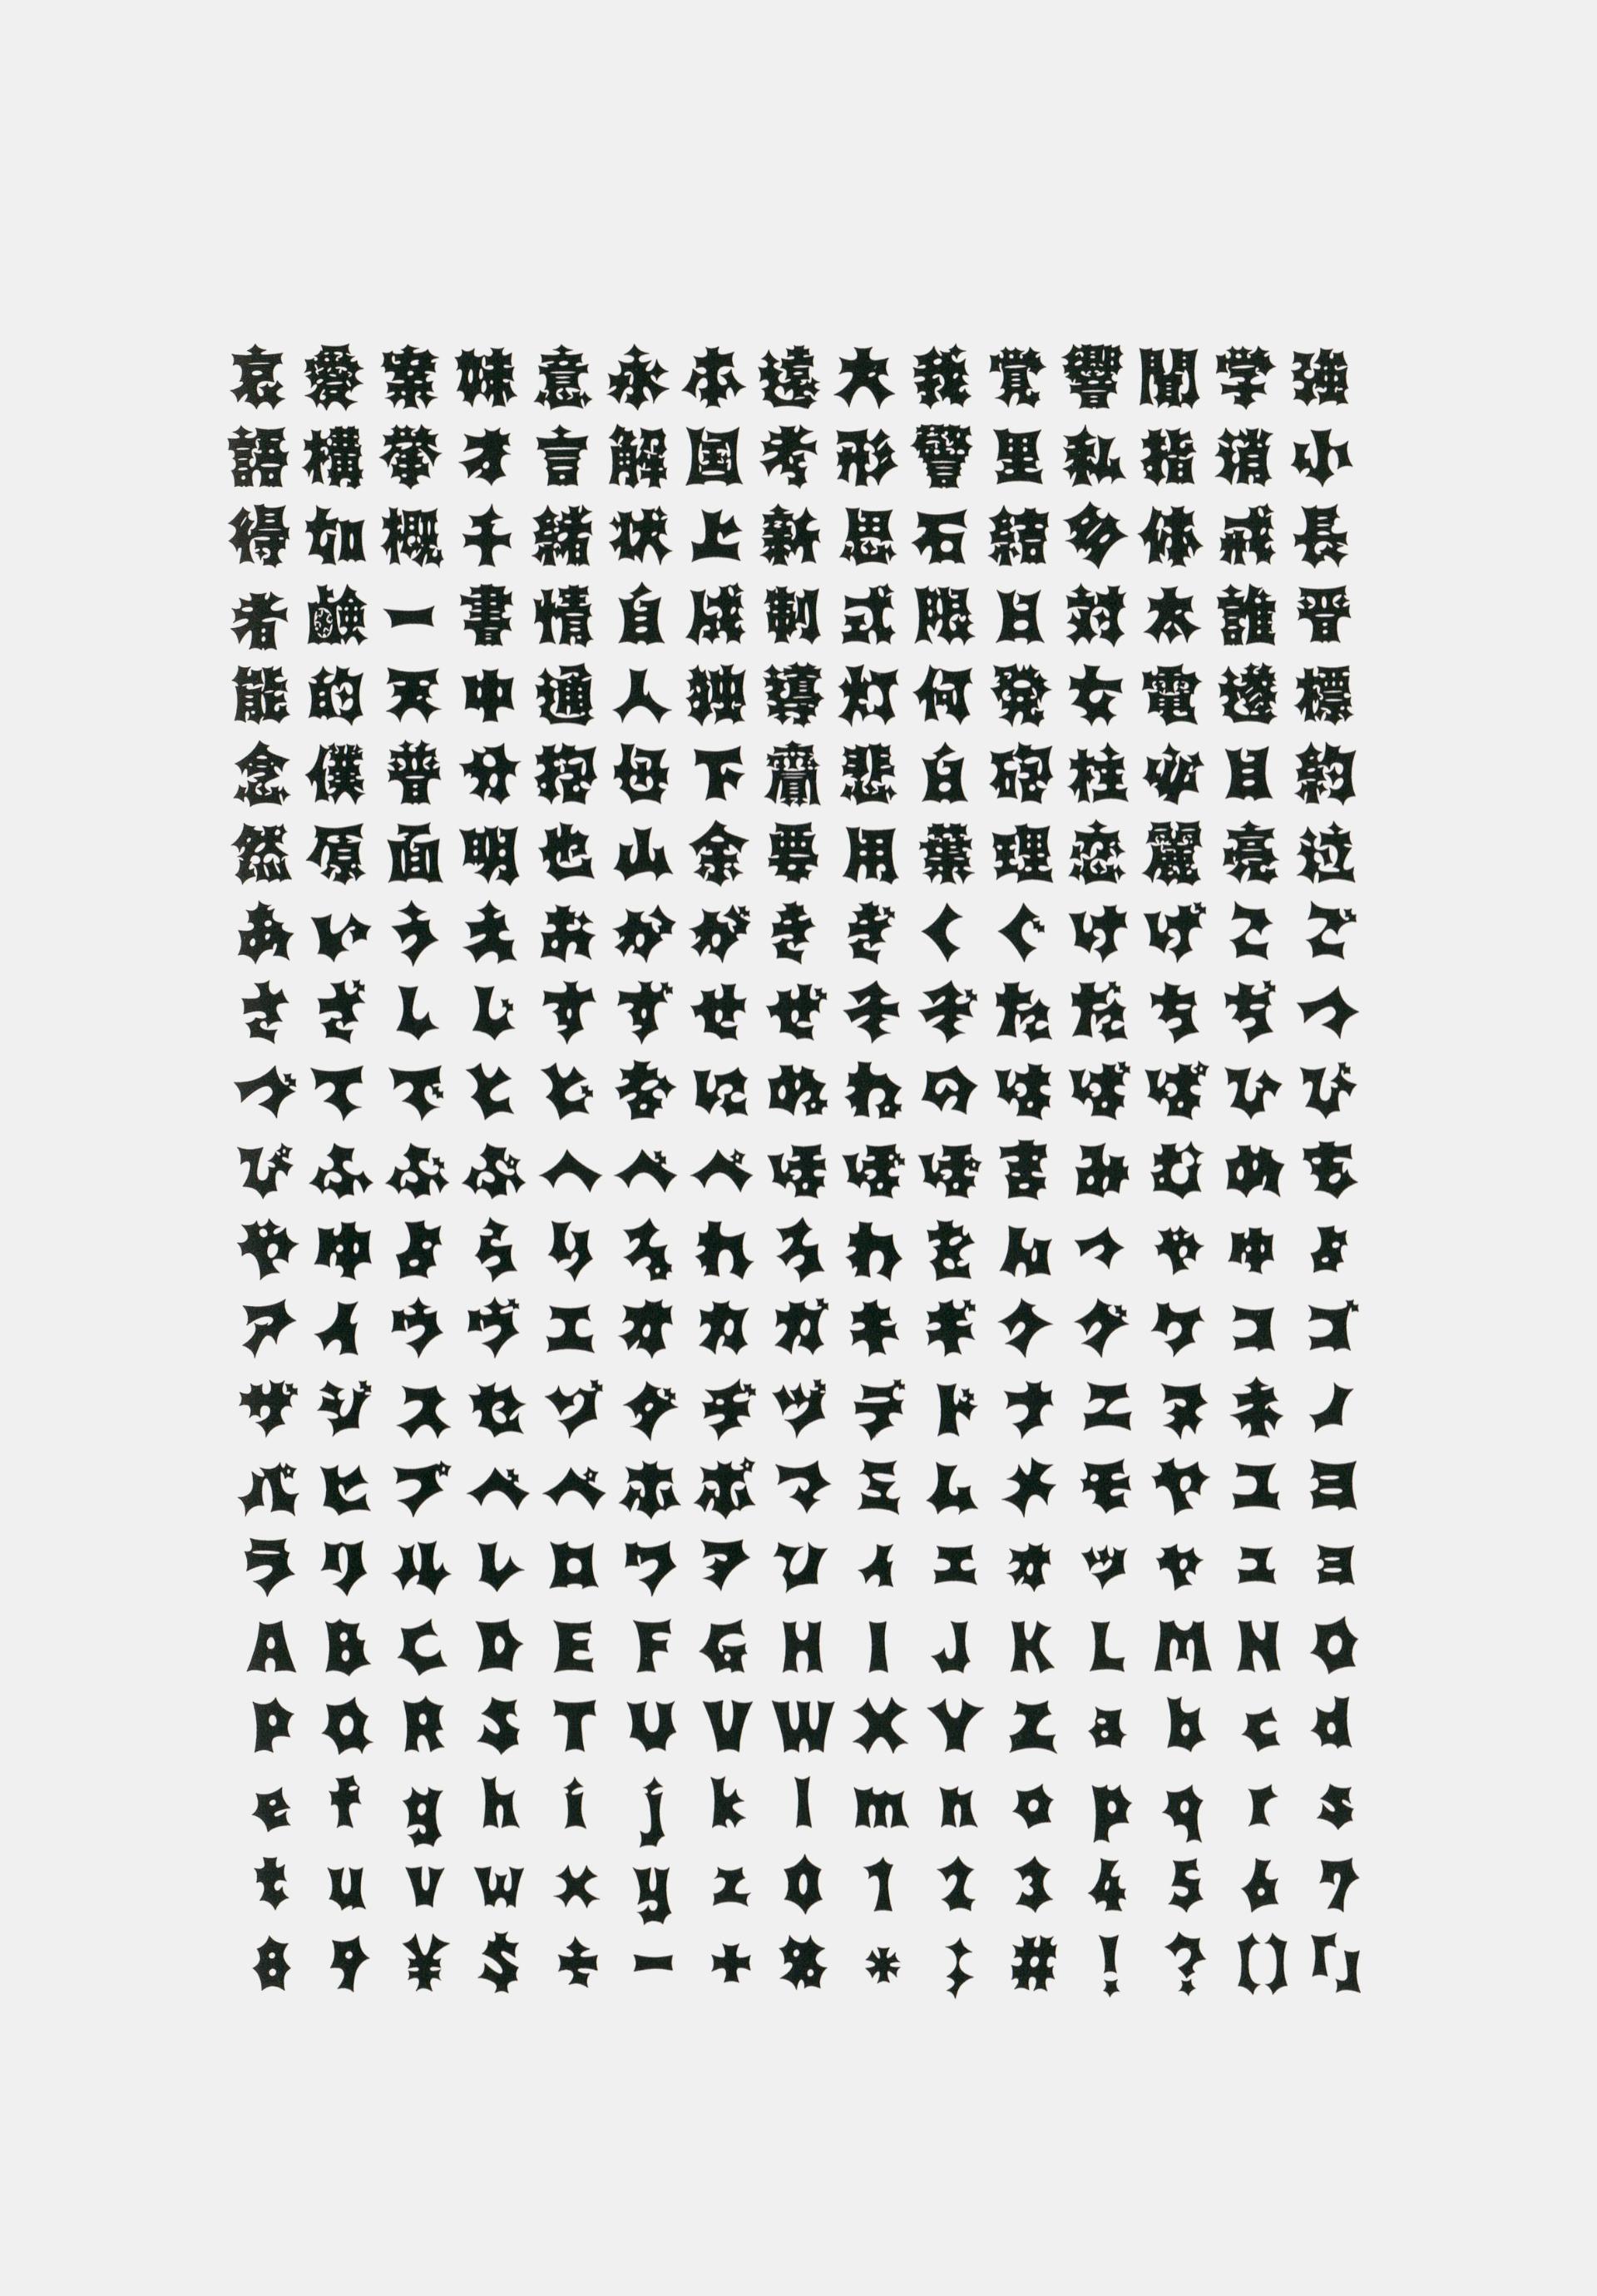 哀愛案味意永本遠大我覚響聞学強
語構挙才言解国考形警里私指消小
得如概千緒状上新思石結多体戒長
者険一書情自成制式限日対太誰晋
能的天中通人独導灯何発女電遂標
念僕普分抱母下齋悲白砲柱必目約
然原面明也山余要用葉理恋麗亮泣
あいうえおかがきぎくぐけげこご
さざしじすずせぜそぞただちぢつ
づてでとどなにぬねのはばぱひび
ぴふぶぷへべぺほぼぽまみむめも
やゆよらりるれろわをんっゃゅょ
アイウヴエオカガキギクグケココ゛
ザジスセゾダヂヅデドナニヌネノ
パヒプベペホボマミムメモヤユヨ
ラリルレロワァソィェォッャュョ
ABCDEFGHIJKLMNO
PQRSTUVWXYZabcd
efghijklmnopqrs
tuvwxyz01234567
89¥$÷−+%*:#!?()「」